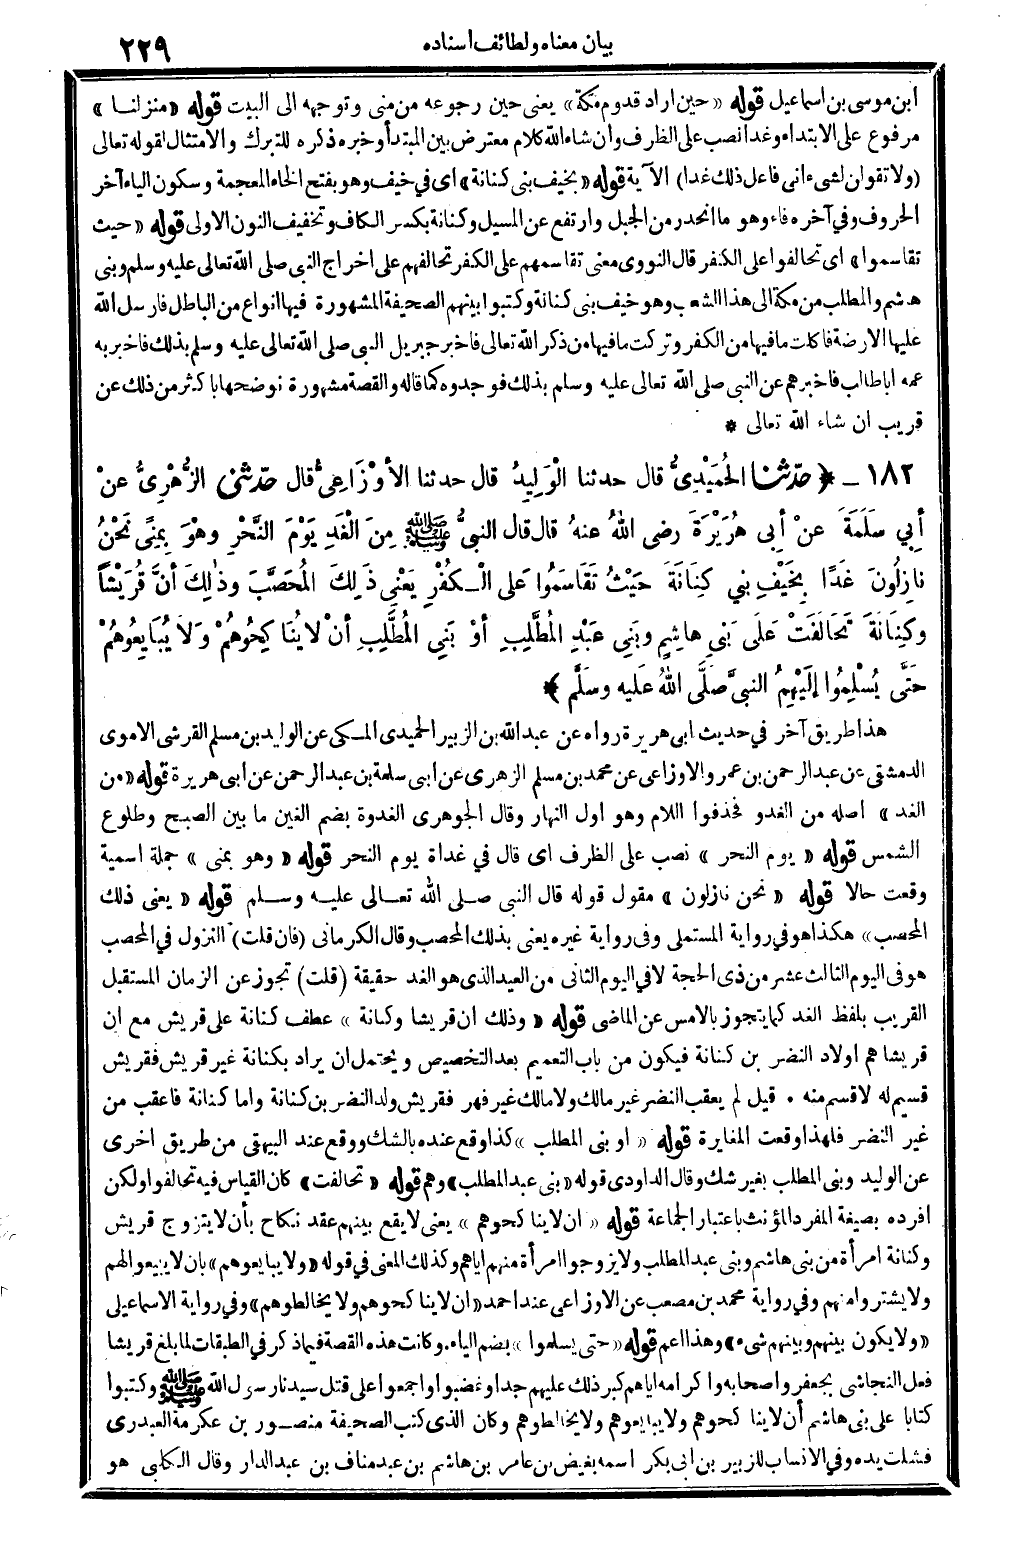 بيان معناه ولطائف اسناده
٢٢٩
ابن موسى بن اسماعيل قوله « حين اراد قدوم مكة » يعنى حين رجوعه من منى وتوجهه الى البيت قوله « منزلنا »
مرفوع على الابتداء وغدا نصب على الظرف وان شاء الله كلام معترض بين المبتدأ وخبره ذكره للتبرك والامتثال لقوله تعالى
(ولا تقولن لشىء انى فاعل ذلك غدا) الآية قوله « بخيف بنى كنانة » اى في خيف وهو بفتح الخاء المعجمة وسكون الياء آخر
الحروف وفي آخره فاء وهو ما انحدر من الجبل وارتفع عن المسيل وكنانة بكسر الكاف وتخفيف النون الاولى قوله « حيث
تقاسموا » اى تحالفوا على الكفر قال النووى معنى تقاسمهم على الكفر تحالفهم على اخراج النبى صلى الله تعالى عليه وسلم وبنى
هاشم والمطلب من مكة الى هذا الشعب وهو خيف بنى كنانة وكتبوا بينهم الصحيفة المشهورة فيها انواع من الباطل فارسل الله
عليها الارضة فاكلت ما فيها من الكفر وتركت ما فيها من ذكر الله تعالى فاخبر جبريل النبى صلى الله تعالى عليه وسلم بذلك فاخبر به
عمه ابا طالب فاخبرهم عن النبى صلى الله تعالى عليه وسلم بذلك فوجدوه كما قاله والقصة مشهورة نوضحها باكثر من ذلك عن
قريب ان شاء الله تعالى *
١٨٢ ـ ﴿ حدّثنا الحُمَيْدِىُّ قال حدثنا الْوَلِيدُ قال حدثنا الأَوْزَاعِىُّ قال حدّثنى الزُّهْرِىُّ عنْ
أبِي سَلَمَةَ عنْ أبِى هُرَيْرَةَ رضى اللهُ عنهُ قال قال النبىُّ ﷺ مِنَ الْغَدِ يَوْمَ النَّحْرِ وهْوَ بِمِنًى نَحْنُ
نازِلُونَ غَدًا بِخَيْفِ بَنِي كِنَانَةَ حَيْثُ تَقَاسَمُوا عَلى الْـكُفْرِ يَعْنِى ذَلِكَ الْمُحَصَّبَ وذٰلِكَ أنَّ قُرَيْشًا
وكِنَانَةَ تَحَالَفَتْ عَلَى بَنِى هاشِمٍ وبَنِى عَبْدِ المُطَّلِبِ أوْ بَنِى المُطَّلِبِ أنْ لا يُنَاكِحُوهُمْ وَلاَ يُبَايِعُوهُمْ
حَتَّى يُسْلِمُوا إلَيْهِمُ النبىَّ صَلَّى اللهُ عَليه وسَلَّم ﴾
هذا طريق آخر في حديث ابى هريرة رواه عن عبدالله بن الزبير الحميدى المكى عن الوليد بن مسلم القرشى الاموى
الدمشقى عن عبد الرحمن بن عمرو الاوزاعى عن محمد بن مسلم الزهرى عن ابى سلمة بن عبد الرحمن عن ابى هريرة قوله « من
الغد » اصله من الغدو فحذفوا اللام وهو اول النهار وقال الجوهرى الغدوة بضم الغين ما بين الصبح وطلوع
الشمس قوله « يوم النحر » نصب على الظرف اى قال في غداة يوم النحر قوله « وهو بمنى » جملة اسمية
وقعت حالا قوله « نحن نازلون » مقول قوله قال النبى صلى الله تعالى عليه وسلم قوله « يعنى ذلك
المحصب » هكذا هو في رواية المستملى وفى رواية غيره يعنى بذلك المحصب وقال الكرمانى (فان قلت) النزول في المحصب
هو فى اليوم الثالث عشر من ذى الحجة لا في اليوم الثانى من العيد الذى هو الغد حقيقة (قلت) تجوز عن الزمان المستقبل
القريب بلفظ الغد كما يتجوز بالامس عن الماضى قوله « وذلك ان قريشا وكنانة » عطف كنانة على قريش مع ان
قريشا هم اولاد النضر بن كنانة فيكون من باب التعميم بعد التخصيص ويحتمل ان يراد بكنانة غير قريش فقريش
قسيم له لا قسم منه . قيل لم يعقب النضر غير مالك ولا مالك غير فهر فقريش ولد النضر بن كنانة واما كنانة فاعقب من
غير النضر فلهذا وقعت المغايرة قوله « او بنى المطلب » كذا وقع عنده بالشك ووقع عند البيهقى من طريق اخرى
عن الوليد وبنى المطلب بغير شك وقال الداودى قوله « بنى عبد المطلب » وهم قوله « تحالفت » كان القياس فيه تحالفوا ولكن
افرده بصيغة المفرد المؤنث باعتبار الجماعة قوله « ان لا يناكحوهم » يعنى لا يقع بينهم عقد نكاح بأن لا يتزوج قريش
وكنانة امرأة من بنى هاشم وبنى عبد المطلب ولا يزوجوا امرأة منهم اياهم وكذلك المعنى في قوله « ولا يبايعوهم » بان لا يبيعوا لهم
ولا يشتروا منهم وفي رواية محمد بن مصعب عن الاوزاعى عند احمد « ان لا يناكحوهم ولا يخالطوهم » وفي رواية الاسماعيلى
« ولا يكون بينهم وبينهم شىء » وهذا اعم قوله « حتى يسلموا » بضم الياء . وكانت هذه القصة فيما ذكر في الطبقات لما بلغ قريشا
فعل النجاشى بجعفر واصحابه واكرامه اياهم كبر ذلك عليهم جدا وغضبوا واجمعوا على قتل سيدنا رسول الله ﷺ وكتبوا
كتابا على بنى هاشم أن لا يناكحوهم ولا يبايعوهم ولا يخالطوهم وكان الذى كتب الصحيفة منصور بن عكرمة العبدرى
فشلت يده وفي الانساب للزبير بن ابى بكر اسمه بغيض بن عامر بن هاشم بن عبد مناف بن عبد الدار وقال الكلبى هو